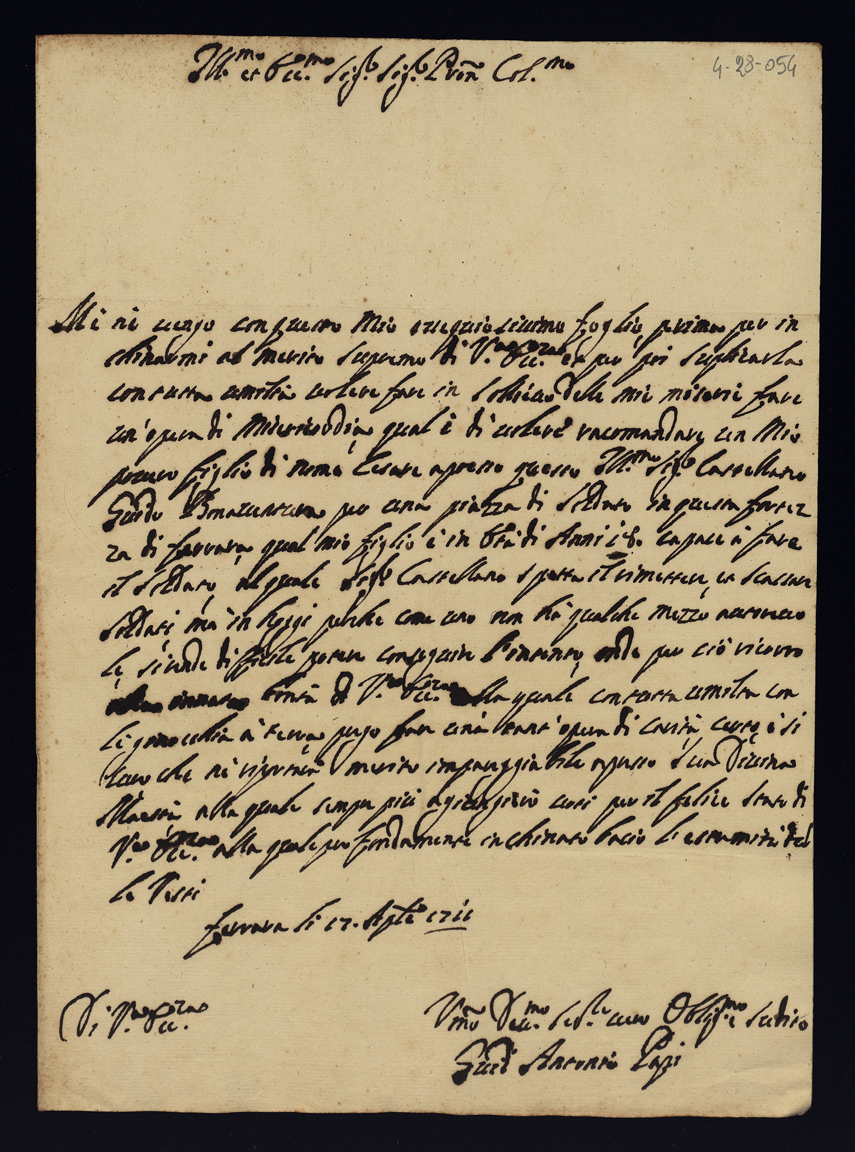 Ill.mo et Ecc.mo Sig.r Sig.r Pron Col.mo
4-28-054
Mi ne vengo con questo mio ossequiosissimo foglio prima per in
chinarmi al merito supremo di V.ra Ecc.za et per poi suplicarla
con tutta umiltà volere fare in solievo dele mie miserie fare
un'opera di Misericordia qual è di volere racomandare un mio
povero figlio di nome Cesare apresso questo Ill.mo Sig.r Castellano
Guido Bonaventura per una piazza di soldato in questa fortez
za di ferrara qual mio figlio è in Età di Anni 18. capace à fare
il soldato, al quale Sig.r Castellano spetta il rimettere, et scassare
soldati, ma in hoggi perche come uno non hà qualche mezzo autorevo
le, si rende dificile potere conseguire l'intento, onde per ciò ricorro
bontà di V.ra Ecc.za alla quale con tutta umiltà con
le ginochia à terra prego fare una tant'opera di carità, certo è si
curo che ne riporterà merito impareggiabile apresso Sua Divina
Maestà alla quale sempre più porgerò voti per il felice stato di
V.ra Ecc.za alla quale profondamente inchinato bacio l'estremità de
le Vesti
ferrara li 17. 1711
Di V.ra Ecc.za
Vmo Dev.mo Servo Oblig.mo Sudito
Guid' Antonio Papi